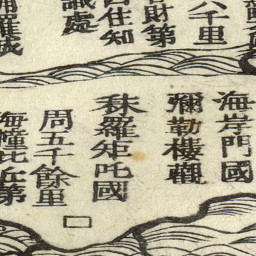 六千里
財第
住知
識處
海岸門國
彌勒樓觀
秣羅矩吒國
周五千餘里
海幢比丘第